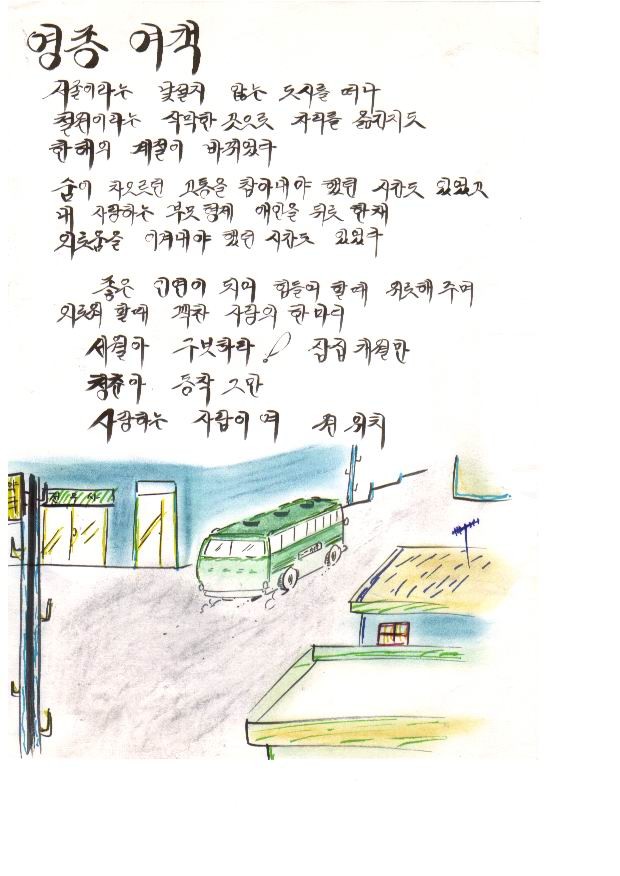 영종 여객
서울이라는 낯설지 않는 도시를 떠나
철원이라는 삭막한 곳으로 자리를 옮긴지도
한해의 계절이 바뀌었다
숨이 차오르던 고통을 참아내야 했던 시간도 있었고
내 사랑하는 부모 형제 애인을 뒤로 한채
외로움을 이겨내야 했던 시간도 있었다
좋은 인연이 되어 힘들어 할때 위로해 주며
외로워 할때 찍한 사람의 한마디
세월아 구보하라! 잠집 캐월만
청춘아 동작 그만
사랑하는 사람이여 원 위치
전우사